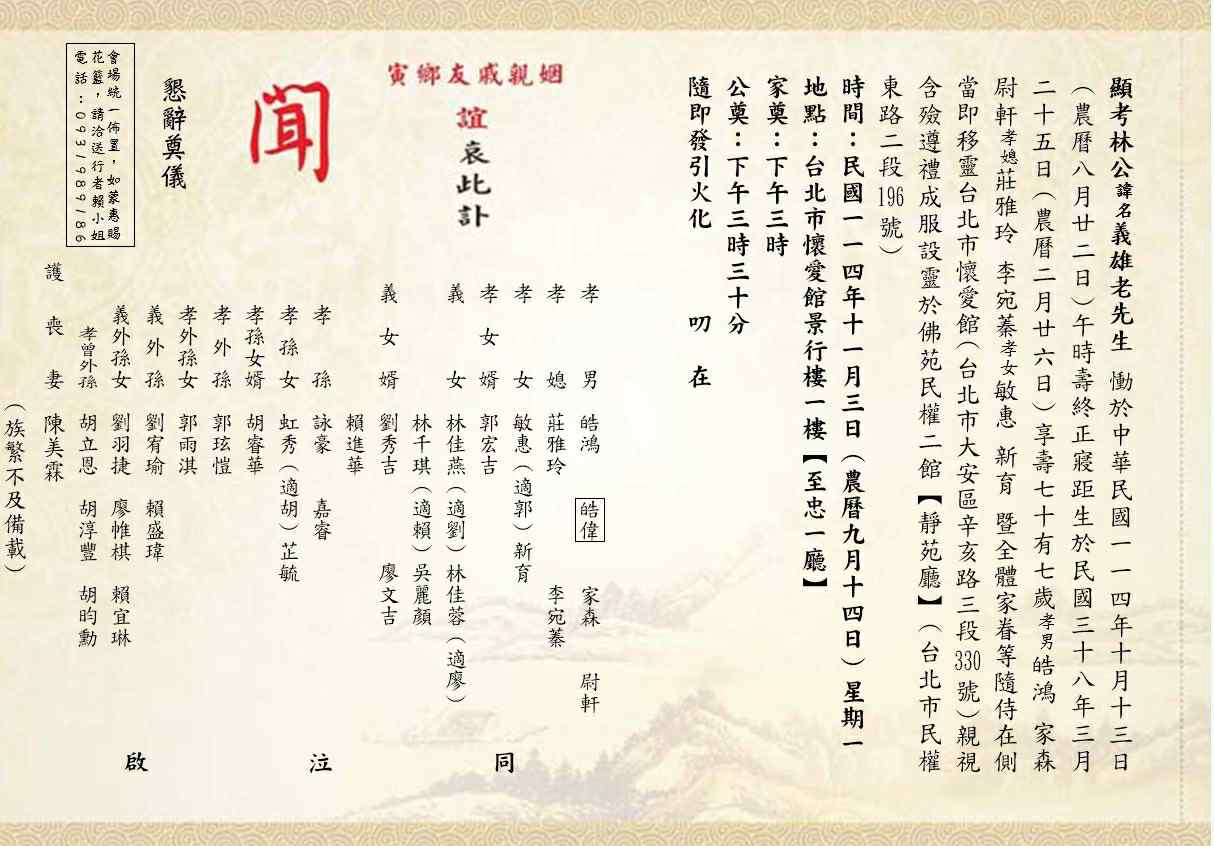 顯考林公諱名義雄老先生 慟於中華民國一一四年十月十三日
（農曆八月廿二日）午時壽終正寢距生於民國三十八年三月
二十五日（農曆二月廿六日）享壽七十有七歲孝男皓鴻 家森
尉軒孝媳莊雅玲 李宛蓁孝女敏惠 新育 暨全體家眷等隨侍在側
當即移靈台北市懷愛館（台北市大安區辛亥路三段330號）親視
含殮遵禮成服設靈於佛苑民權二館【靜苑廳】（台北市民權
東路二段196號）
時間：民國一一四年十一月三日（農曆九月十四日）星期一
地點：台北市懷愛館景行樓一樓【至忠一廳】
家奠：下午三時
公奠：下午三時三十分
隨即發引火化 叨在
姻親戚友鄉寅
誼
哀此訃
聞
孝男 皓鴻 皓偉 家森 尉軒
孝媳 莊雅玲 李宛蓁
孝女 敏惠（適郭）新育
孝女婿 郭宏吉
義女 林佳燕（適劉）林佳蓉（適廖）
林千琪（適賴）吳麗顏
義女婿 劉秀吉 廖文吉
賴進華
孝孫 詠豪 嘉睿
孝孫女 虹秀（適胡）芷毓
孝孫女婿 胡睿華
孝外孫 郭玹愷
孝外孫女 郭雨淇
義外孫 劉宥瑜 賴盛瑋
義外孫女 劉羽捷 廖帷棋 賴宜琳
孝曾外孫 胡立恩 胡淳豐 胡昀勳
護喪妻 陳美霖
（族繁不及備載）
同泣啟
懇辭奠儀
會場統一佈置，如蒙惠賜
花籃，請洽送行者賴小姐
電話：0931989186